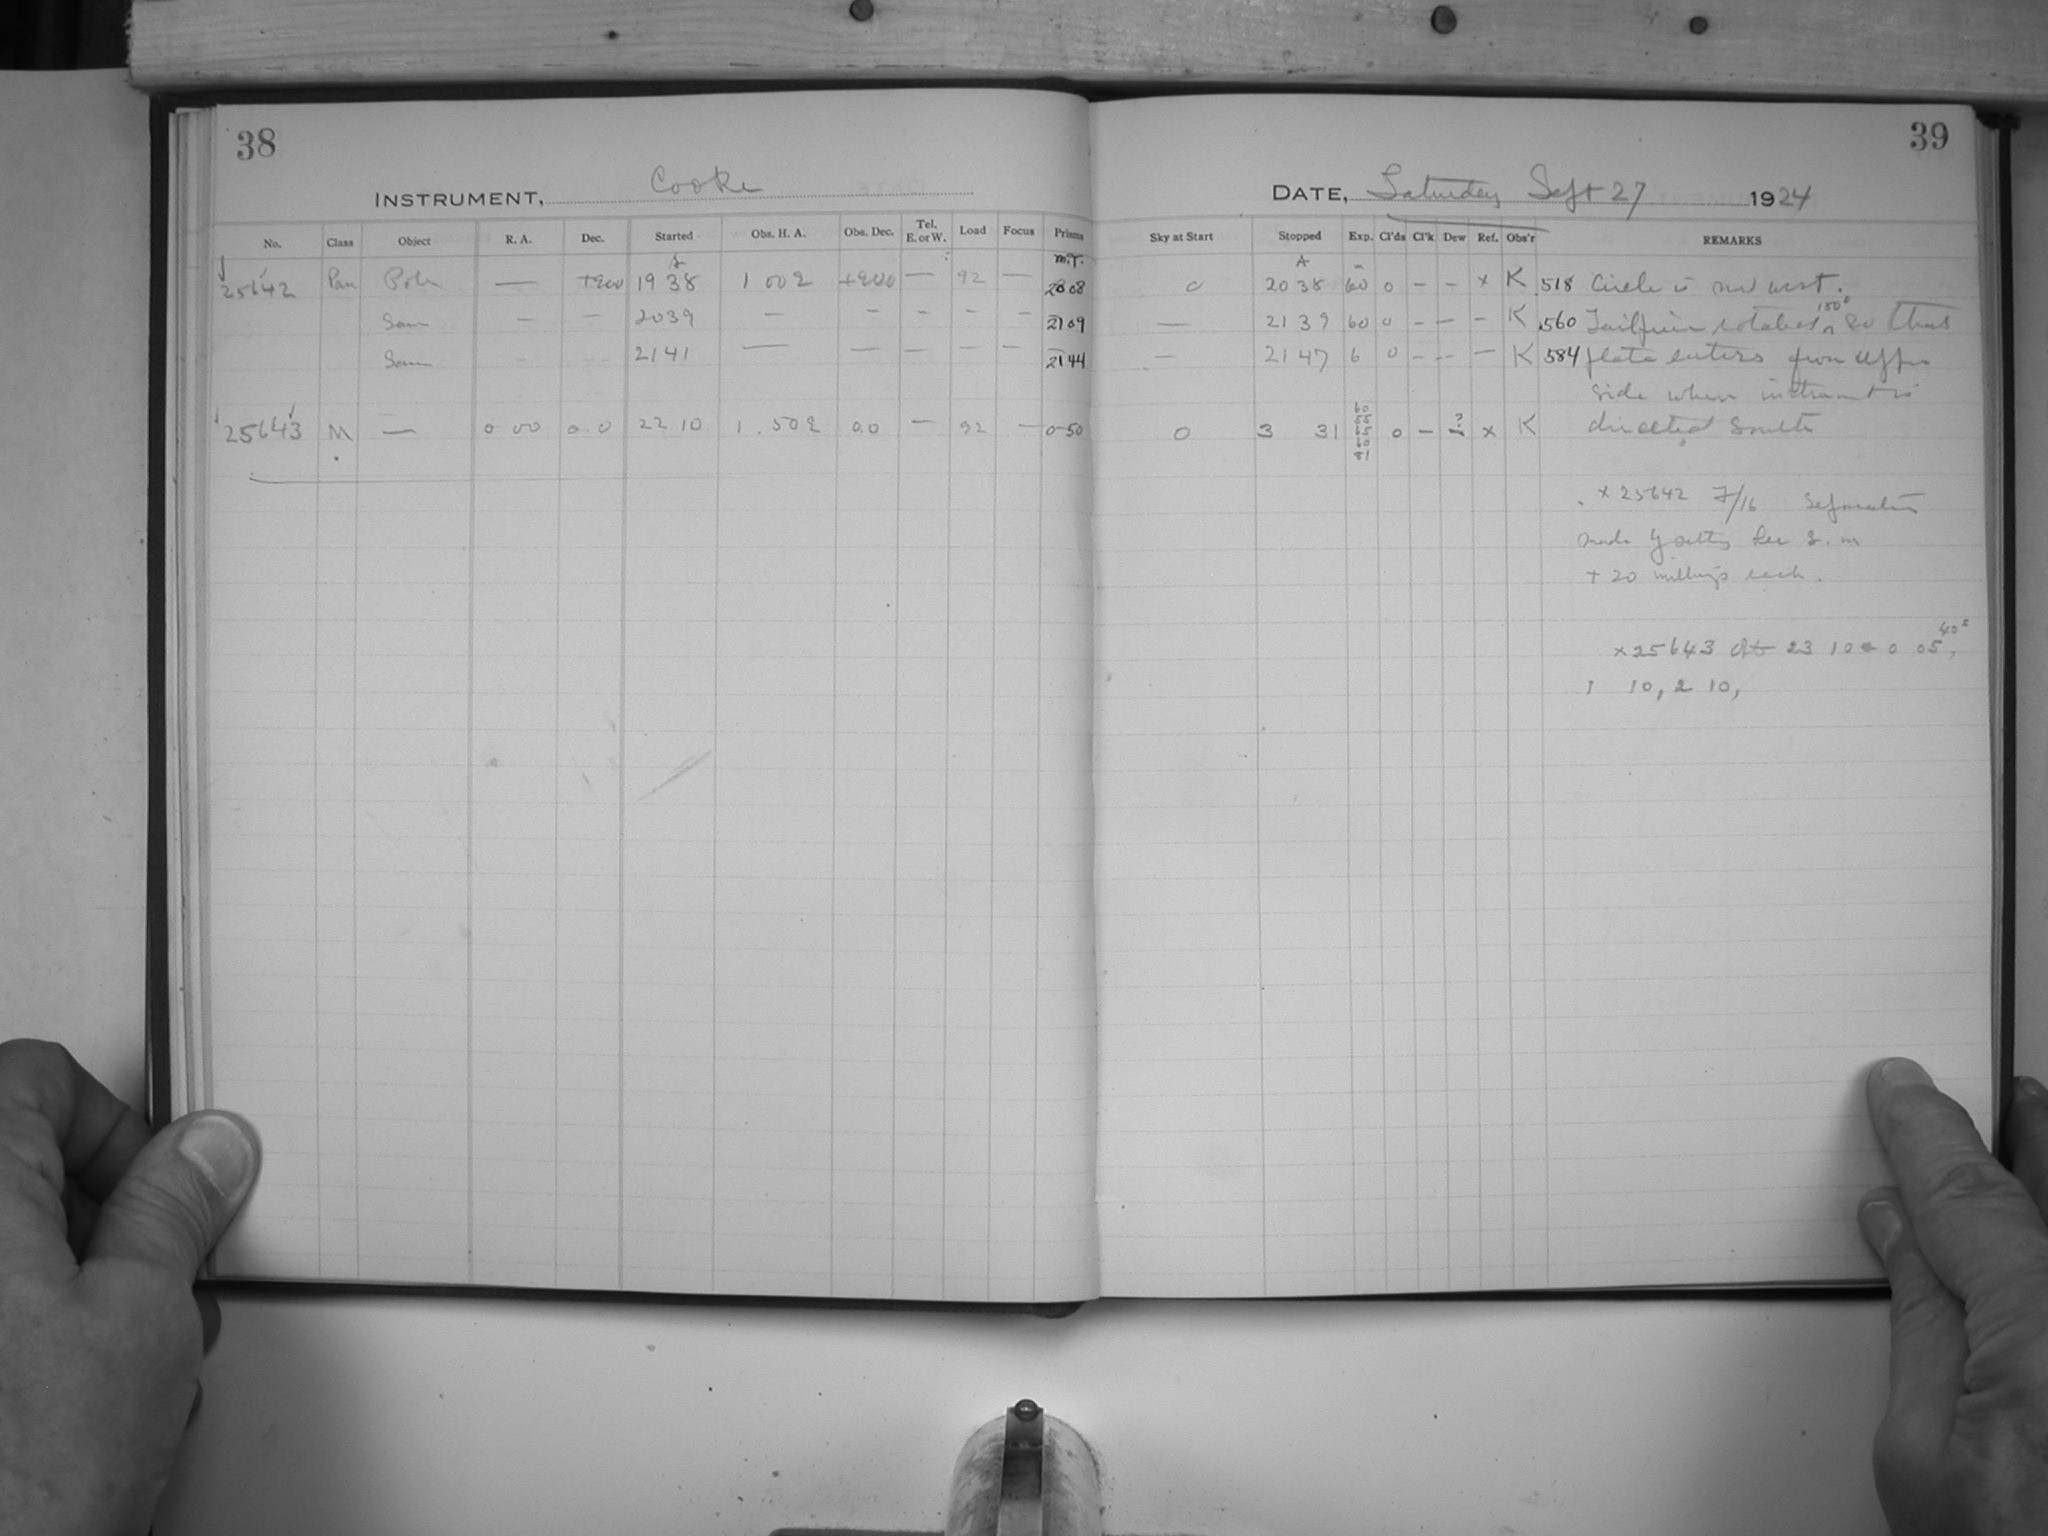 38
INSTRUMENT, Cooke
No. Class Object R. A. Dec. Started Obs. H. A. Obs. Dec. Tel. E. or W. Load Focus Prisms
m.T.
25642 Pan Pole — +900 19 38 1 002 +900 — 92 — 2008
Same — — 2039 — — — — — 2109
Same - - 2141 — — — — — 2144
25643 M — 0 00 0 0 22 10 1 .502 00 — 92 — 0 50
39
DATE, Saturday Sept 27 1924
Sky at Start Stopped Exp. Cl'ds Cl'k Dew Ref. Obs'r REMARKS
0 2038 60 0 - - x K 518 Circle is now west.
— 2139 60 0 - - - K 560 rotated 180° so that
— 2147 6 0 - - - K 584 plate enters from upper
side when instrument is
0 3 31 60 55 65 60 81 0 - ? x K directed South
x 25642 7/16 Separation
made by setting Dec 3. m
+ 20 each.
x25643 at 23 10 0 05 40s,
1 10, 2 10,